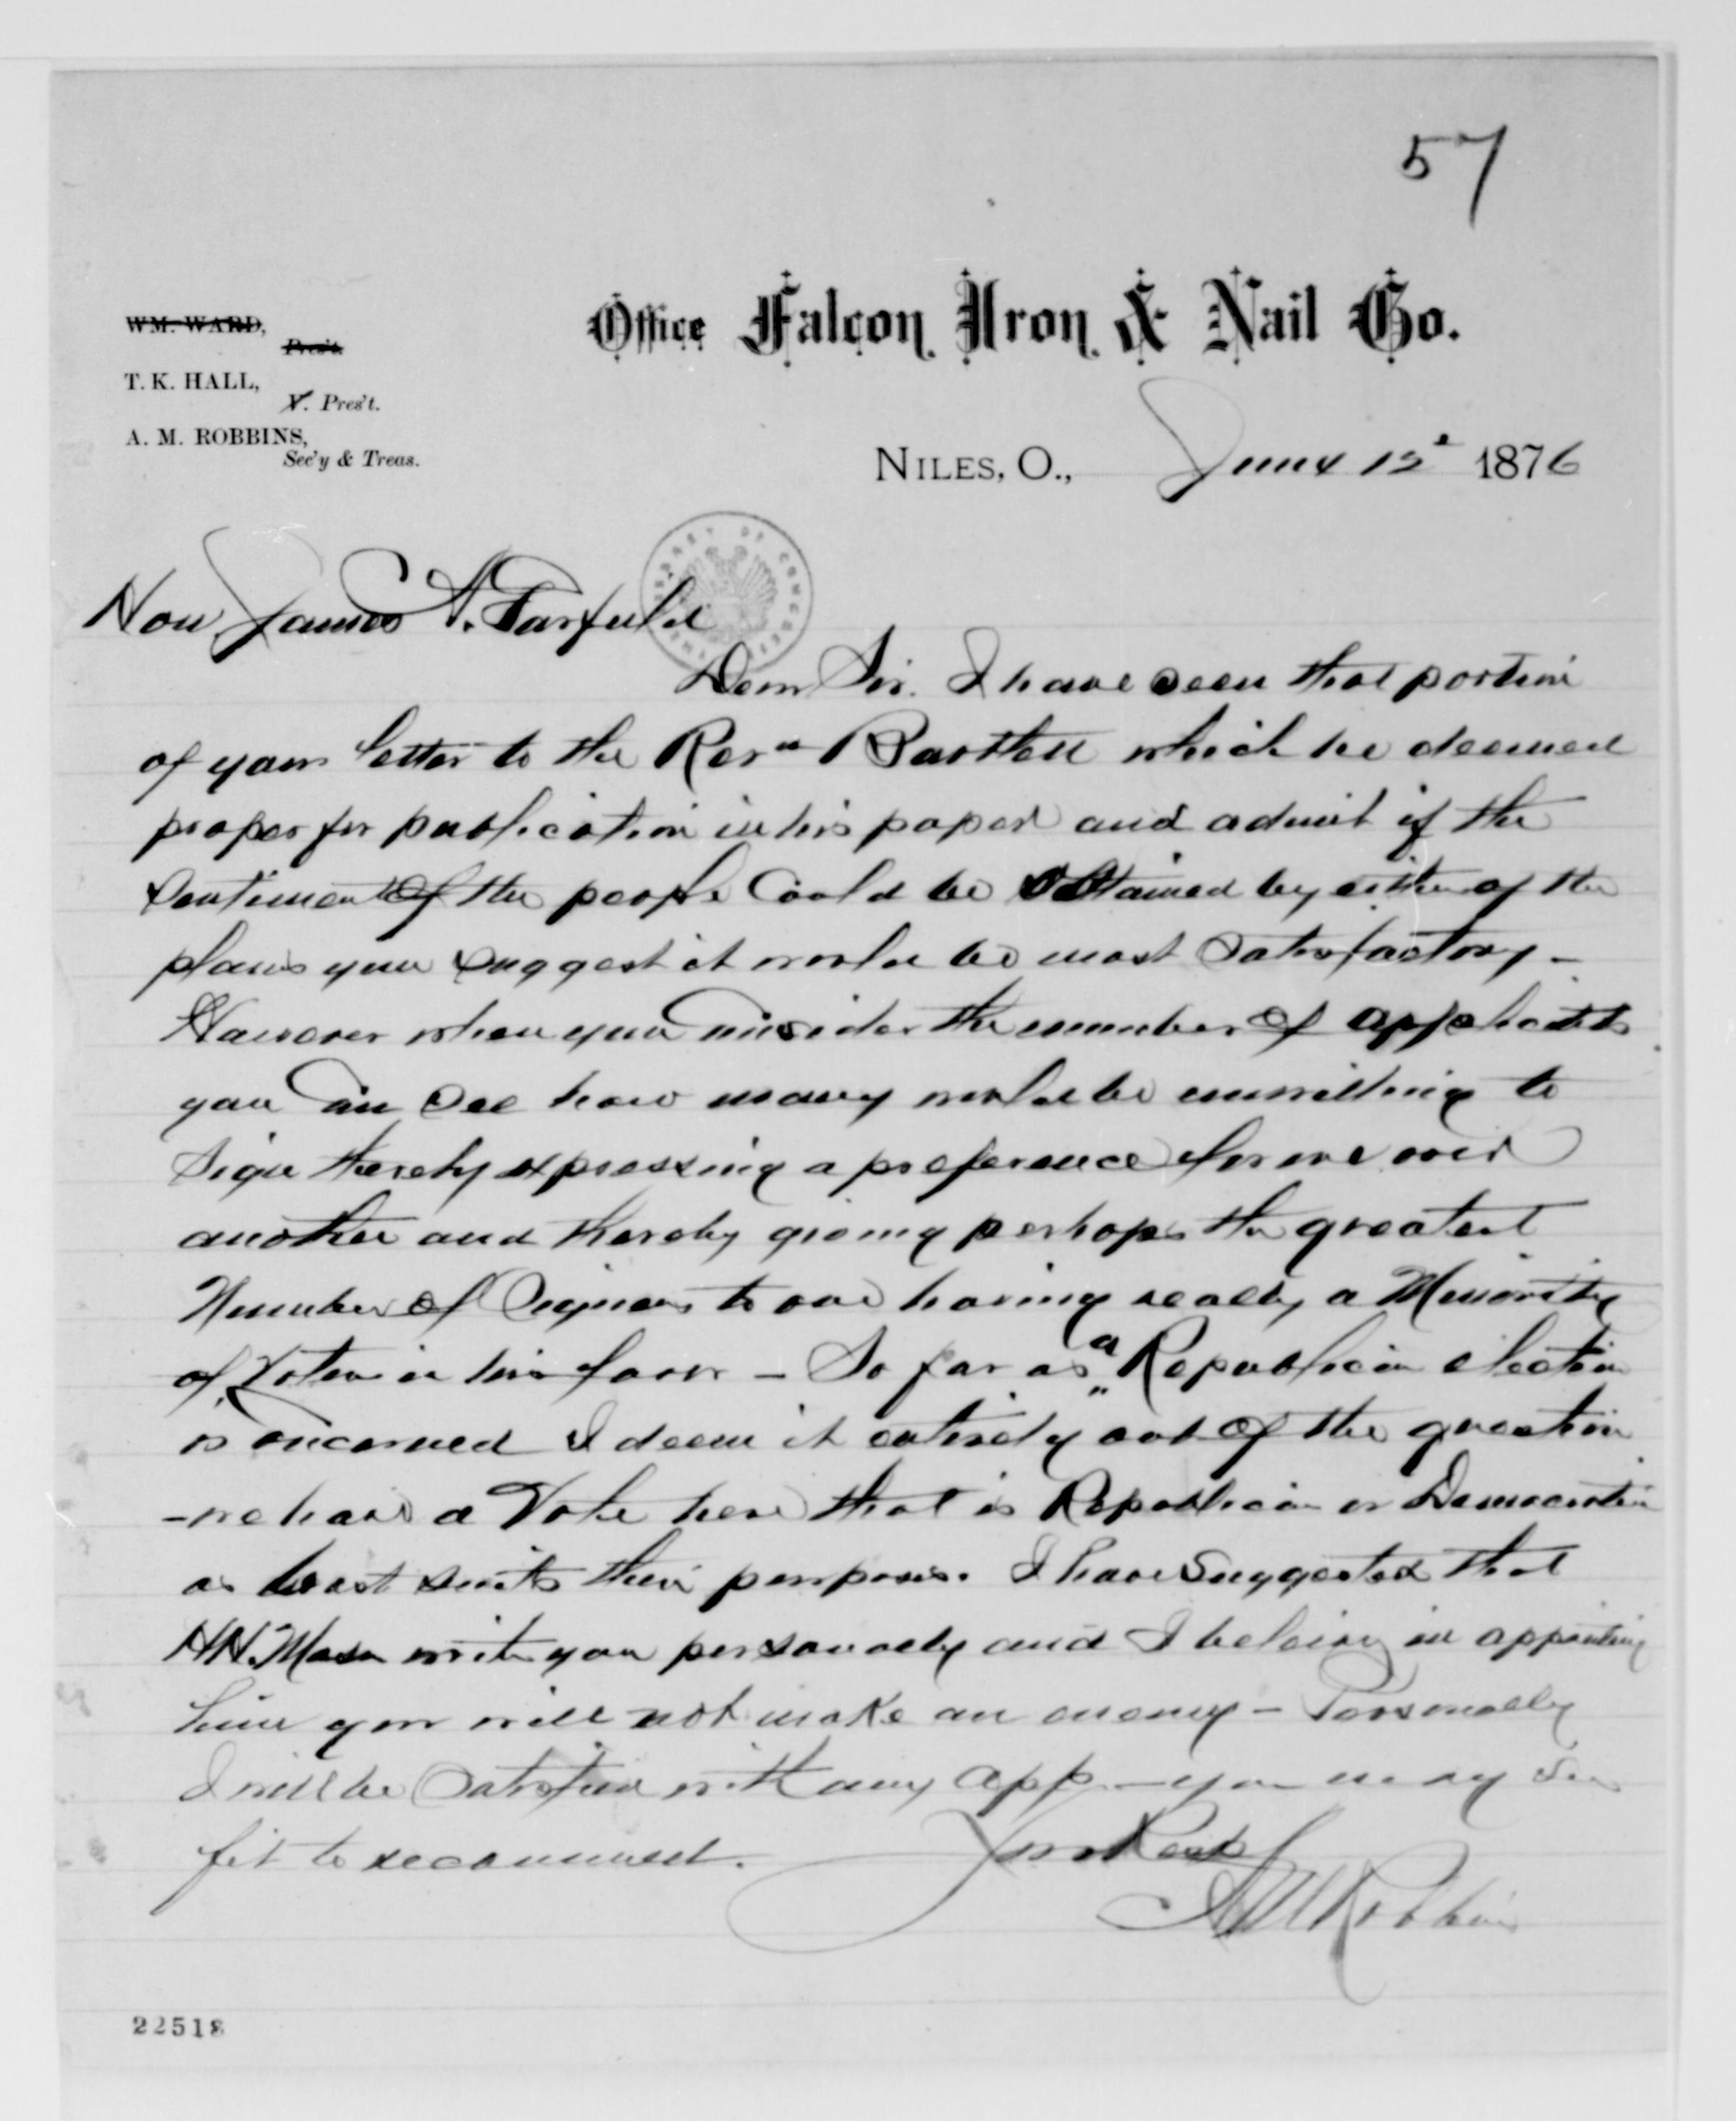 57
Office Falcon Iron & Nail Co.
WM. WARD,
Pres't.
T. K. HALL,
V. Pres't.
A. M. ROBBINS,
Sec'y & Treas.
NILES, O., June 12 1876
LIBRARY OF CONGRESS
Hon James A. Garfield
Dear Sir. I have seen that portion
of your letter to the Rev Bartlett which he deemed
proper for publication in his paper and admit if the
Sentiment of the people Could be obtained by either of the
plans you suggest it would be most Satisfactory –
However when you consider the number of applicants
you can see how many would be unwilling to
Sign thereby expressing a preference for one over
another and thereby giving perhaps the greatest
Number of Signers to one having really a Minority
of Voters in his favor – So far as a Republican election
is concerned I deem it entirely out of the question
– we have a Vote here that is Republican or Democratic
as best suits their purposes. I have Suggested that
H.H. Mason write you personally and I believe in appointing
him you will not make an enemy – Personally
I will be Satisfied with any app – you may see
fit to recommend.
Yours Resp
A M Robbins
22518